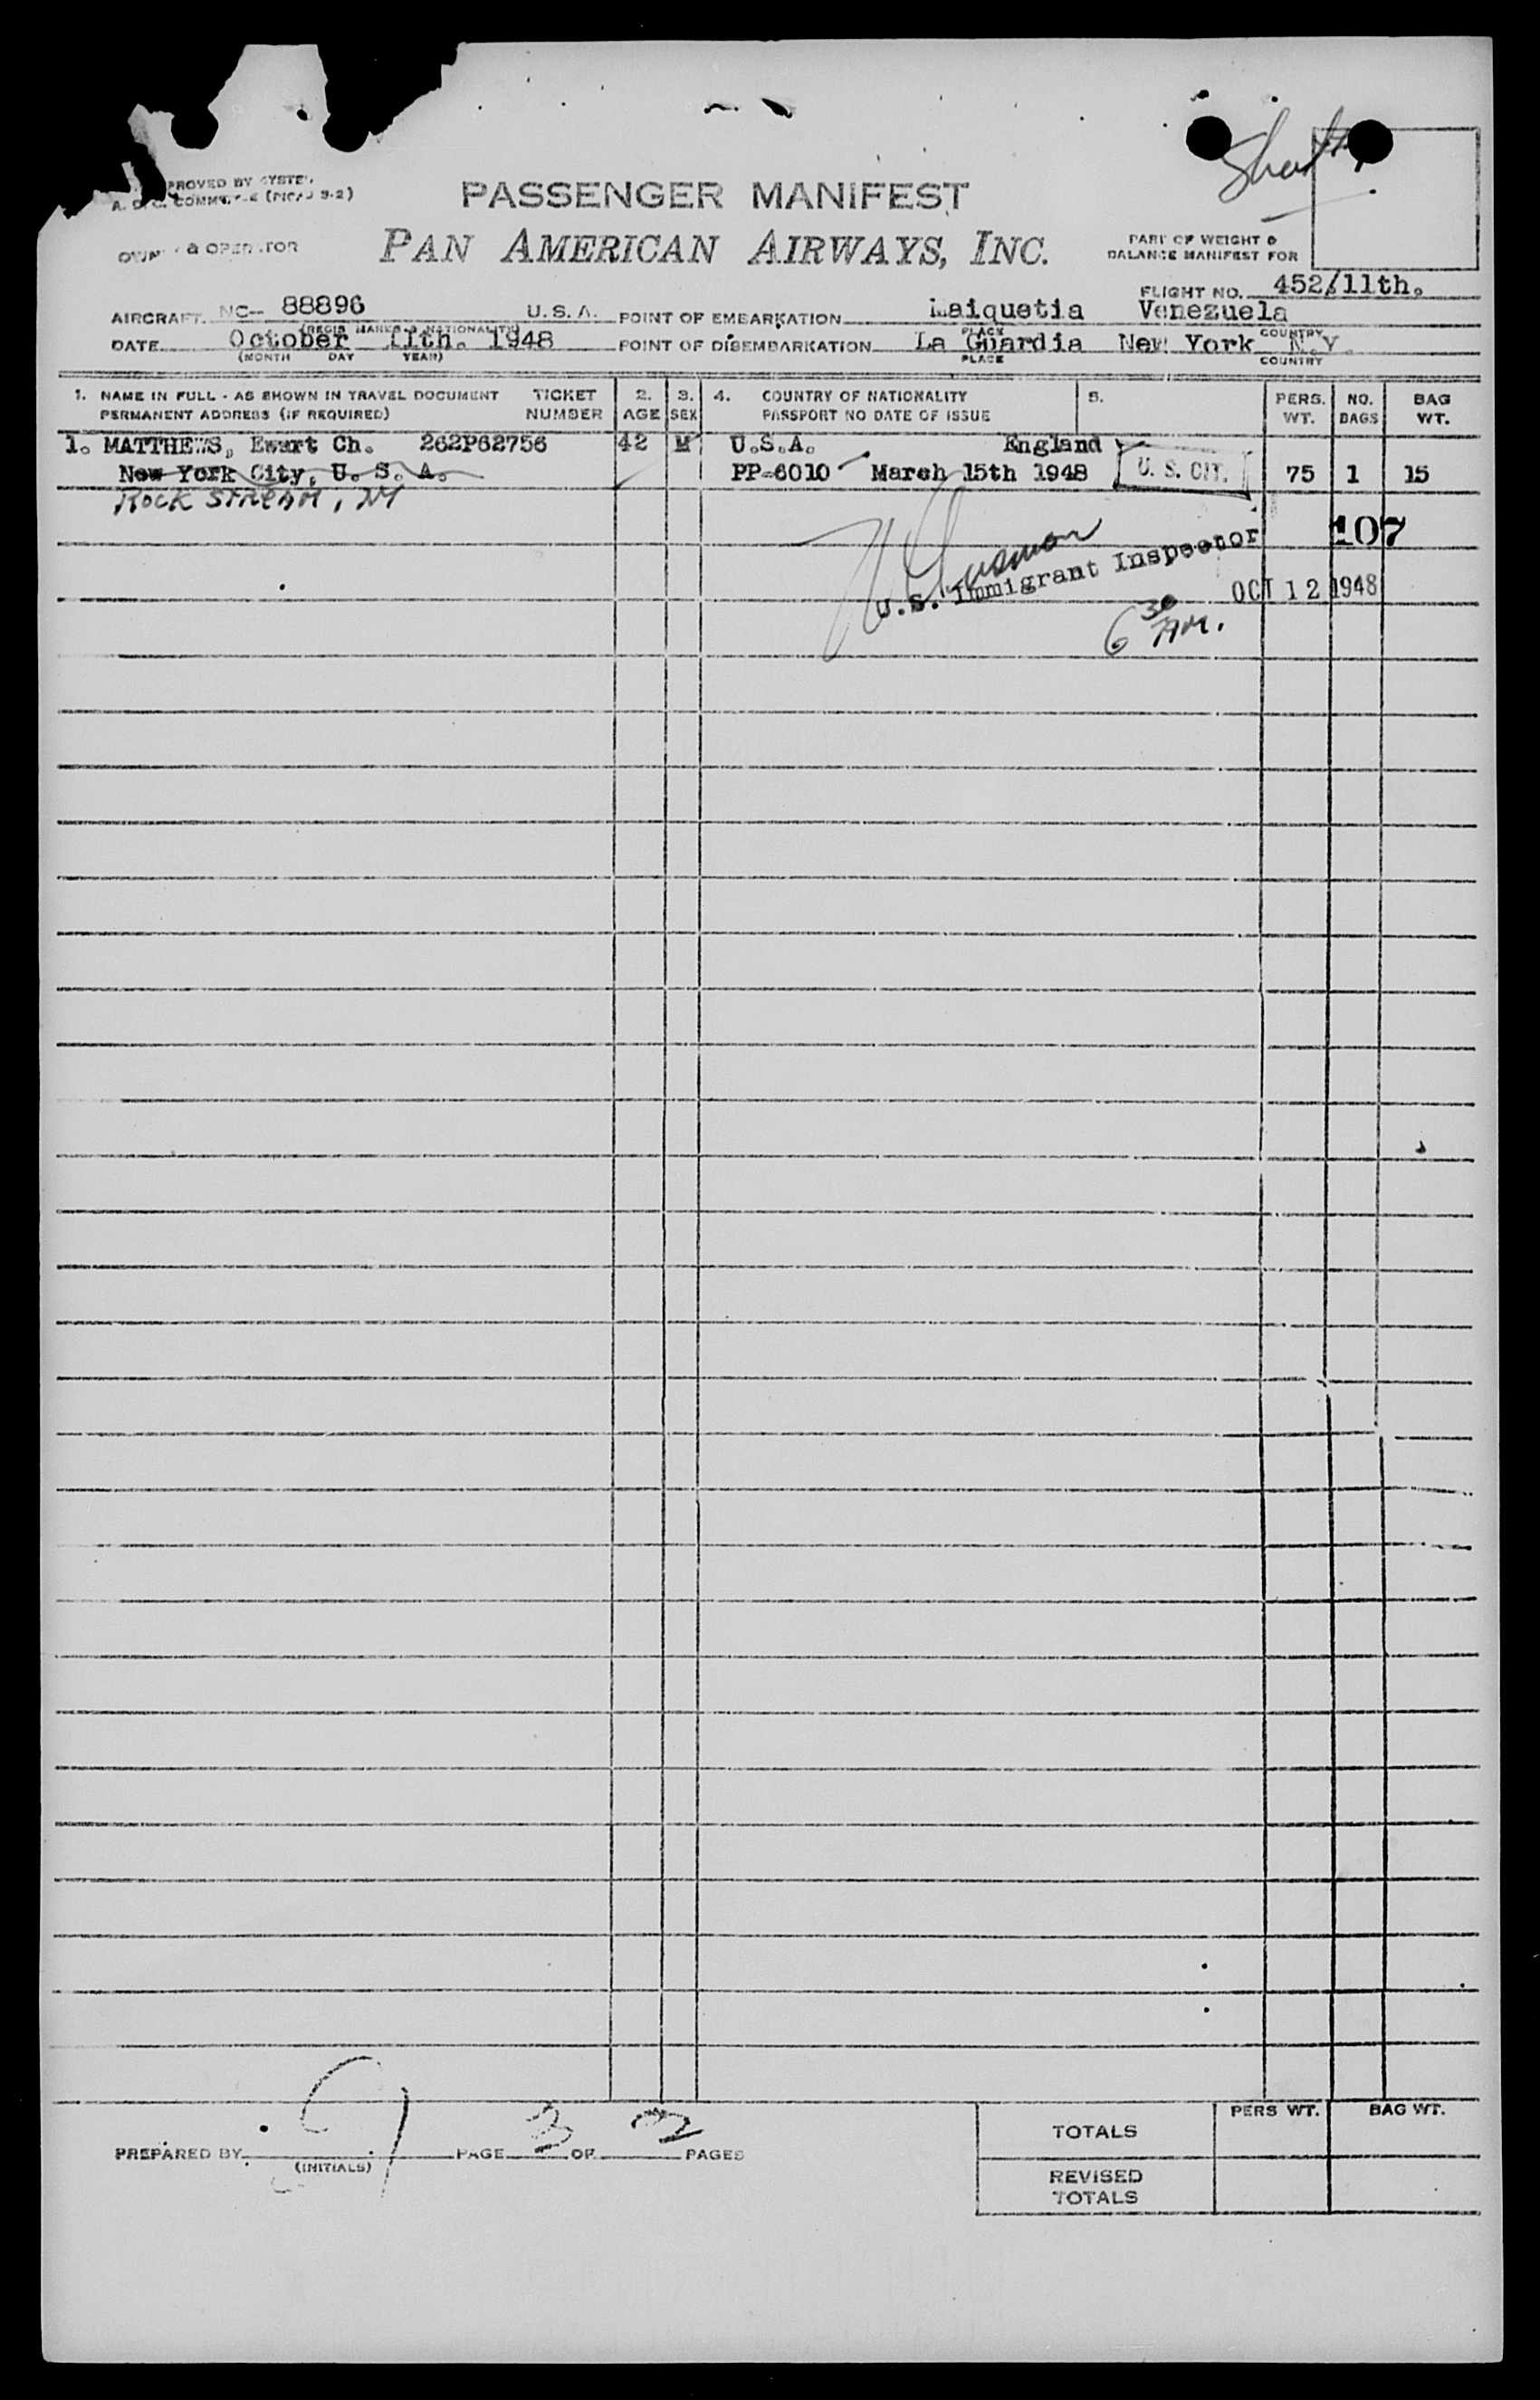 PROVED BY SYSTE
A. O. C. COMM
PASSENGER MANIFEST
PAN AMERICAN AIRWAYS, INC.
& OPERATOR
PART OF WEIGHT &
BALANCE MANIFEST FOR
FLIGHT NO. 452/11th.
AIRCRAFT NC- 88896 U.S.A. POINT OF EMBARKATION Laiquetia Venezuela
(REGIS MARKS & NATIONALITY) PLACE COUNTRY
DATE October 11th. 1948 POINT OF DISEMBARKATION La Guardia New York N.Y.
(MONTH DAY YEAR) PLACE COUNTRY
1. NAME IN FULL - AS SHOWN IN TRAVEL DOCUMENT TICKET 2. 3. 4. COUNTRY OF NATIONALITY 5. PERS. NO. BAG
PERMANENT ADDRESS (IF REQUIRED) NUMBER AGE SEX PASSPORT NO DATE OF ISSUE WT. BAGS WT.
1. MATTHEWS, Ewart Ch. 262P62756 42 M U.S.A. England
New York City, U. S. A. PP-6010 March 15th 1948 U. S. CIT. 75 1 15
ROCK STREAM, NY
107
U.S. Immigrant Inspector
OCT 12 1948
6 30 AM.
PREPARED BY (INITIALS) PAGE 3 OF PAGES
TOTALS PERS WT. BAG WT.
REVISED
TOTALS